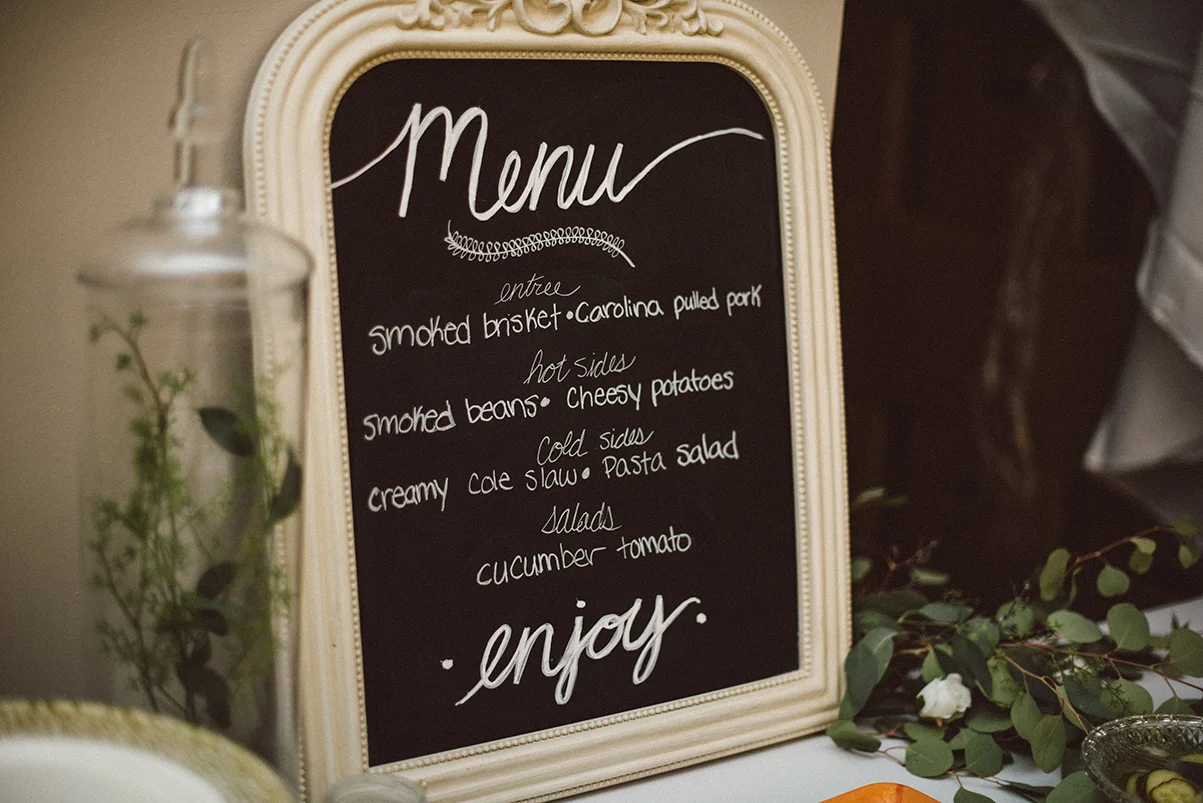 Menu
entree
smoked brisket • Carolina pulled pork
hot sides
smoked beans • Cheesy potatoes
Cold sides
creamy cole slaw • Pasta salad
salads
cucumber tomato
• enjoy •